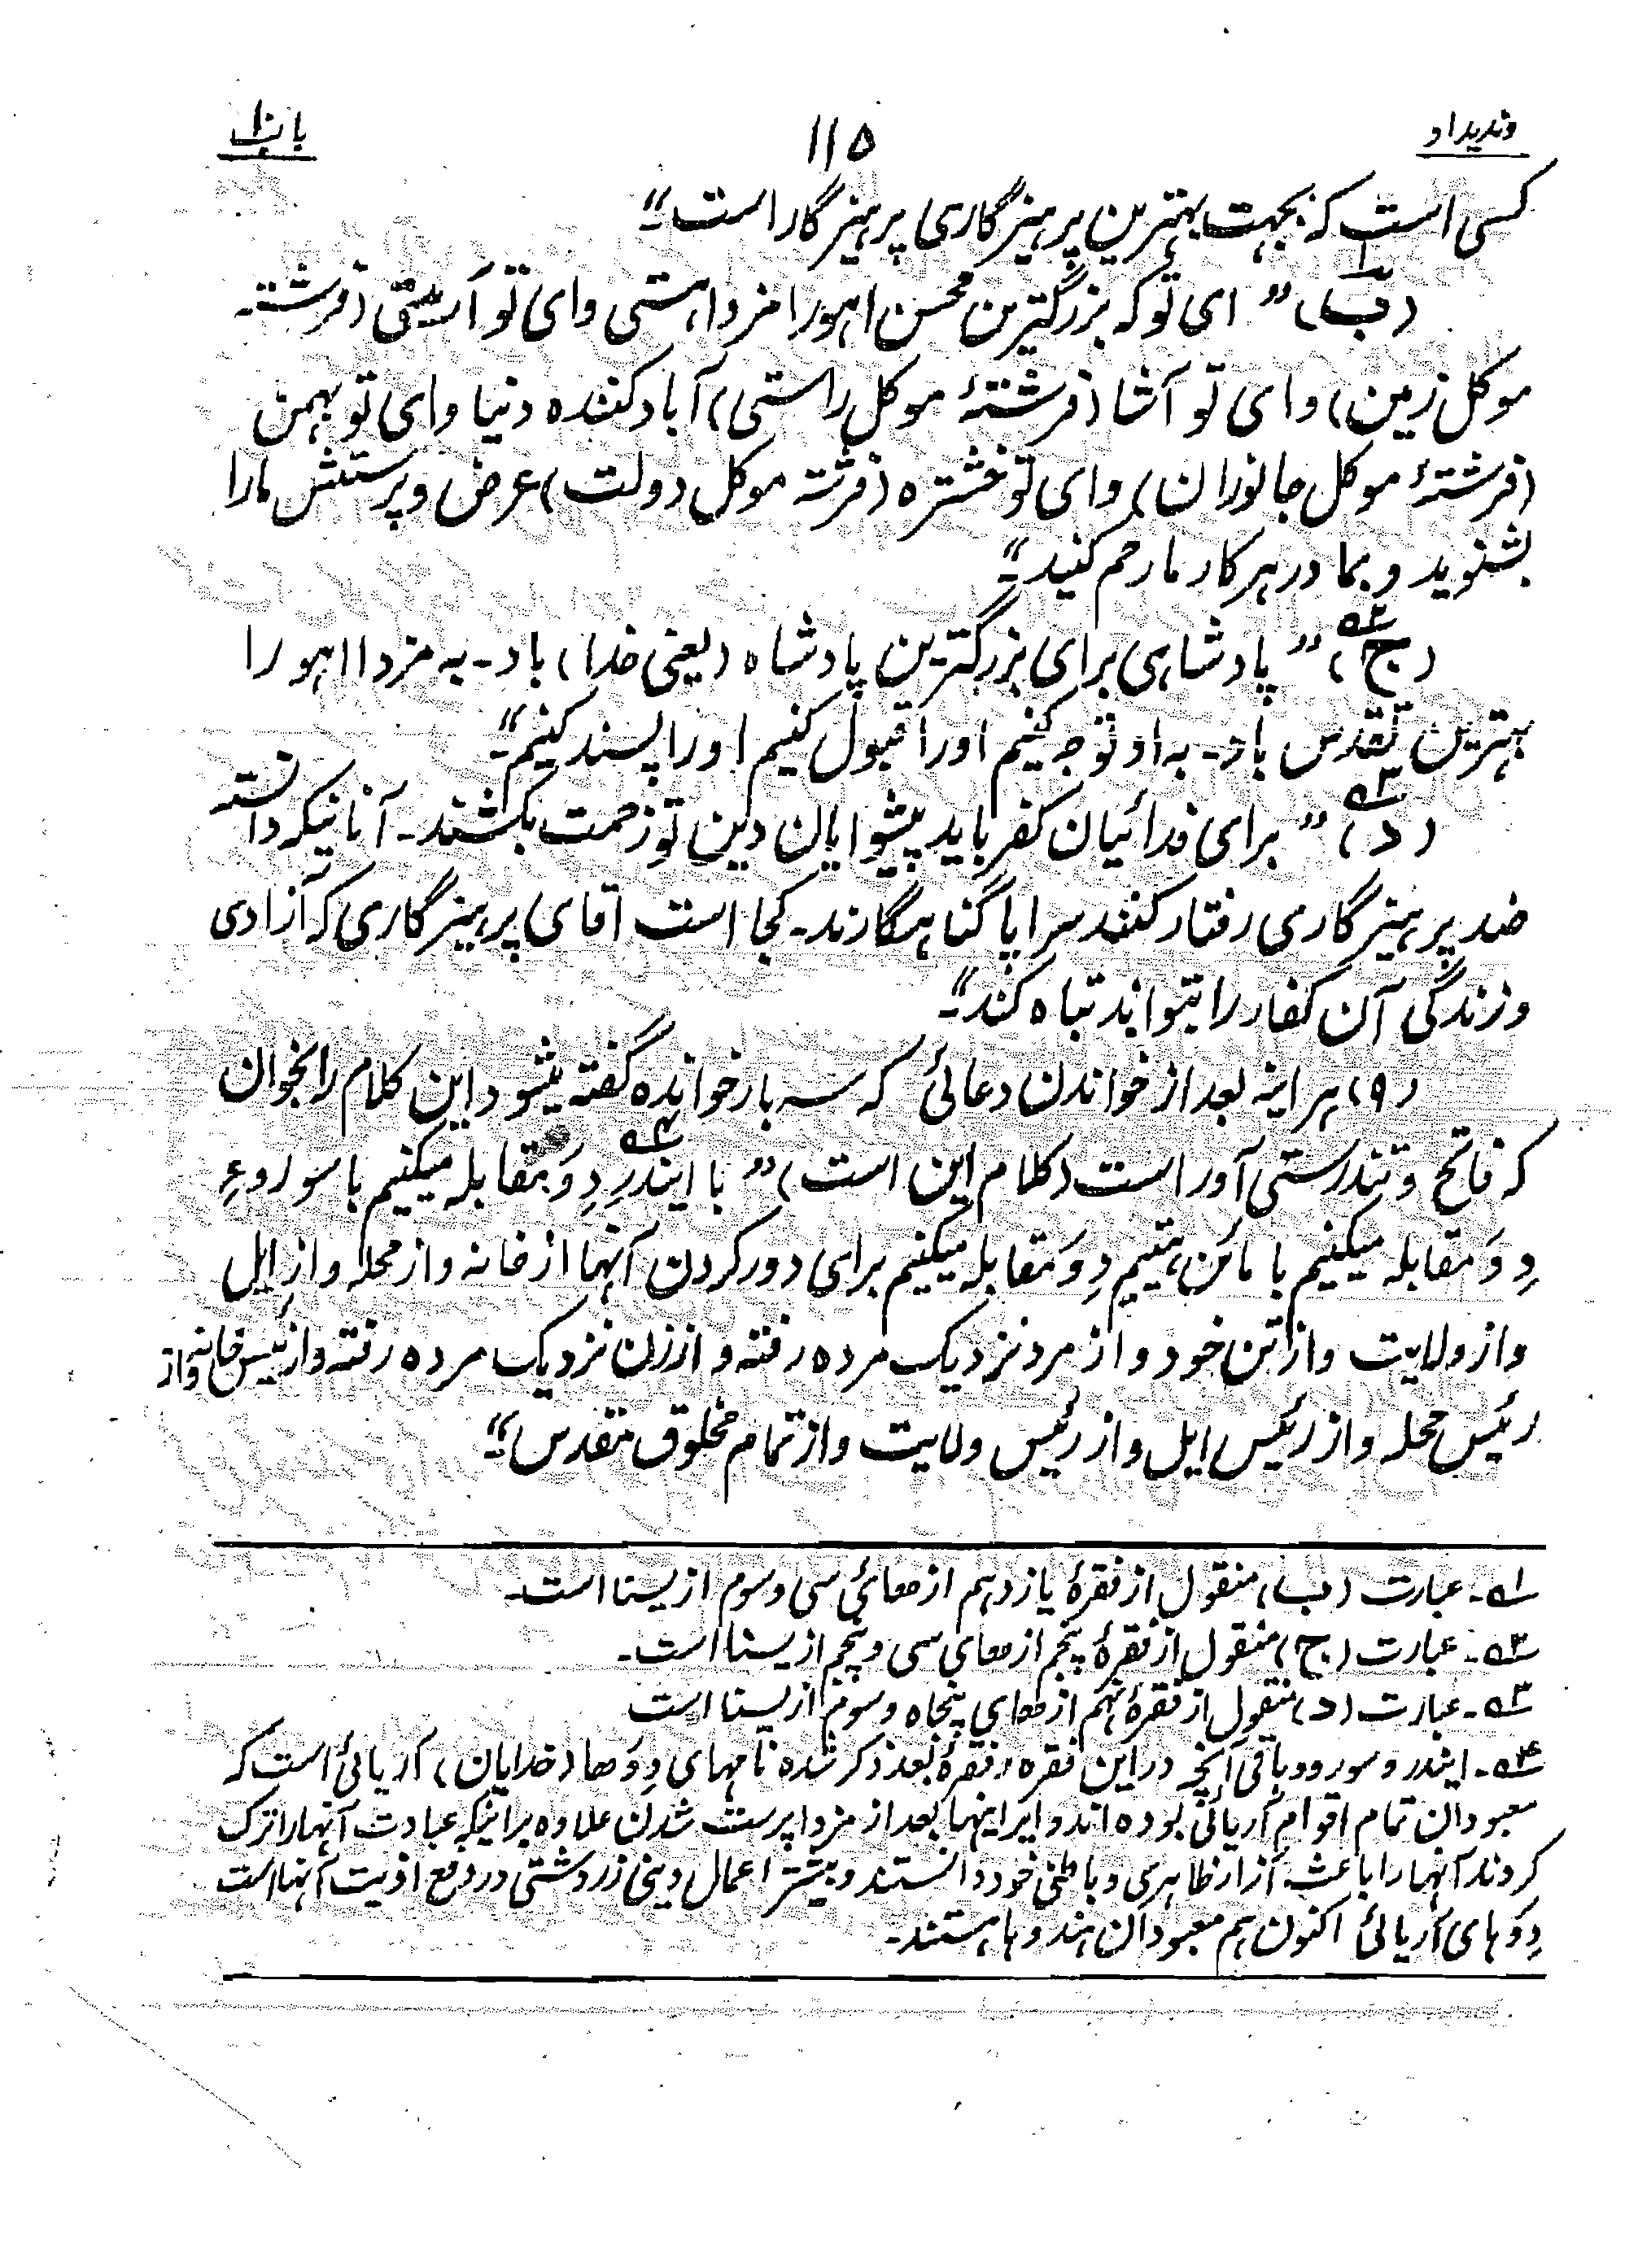 وندیداد ۱۱۵ باب ۱۰
کسی است که بجهت بهترین پرهیزگاری پرهیزگار است"۔
(ب)۱؎ "ای تو که بزرگترین محسن اهورا مزدا هستی وای تو آرمیتی (فرشتہ
موکل زمین) وای تو آشا (فرشتۂ موکل راستی) آباد کننده دنیا وای تو بهمن
(فرشتۂ موکل جانوران) وای تو خشتره (فرشته موکل دولت) عرض و پرستش مارا
بشنوید و بما در هر کار ما رحم کنید"۔
(ج)۲؎ "پادشاهی برای بزرگترین پادشاه (یعنی خدا) باد۔ به مزدا اهورا
بهترین تقدس باد۔ به او توجه کنیم اورا قبول کنیم اورا پسند کنیم"۔
(د)۳؎ "برای فدائیان کفر باید پیشوایان دین تو زحمت بکشند۔ آنانیکه دانسته
ضد پرهیزگاری رفتار کنند سراپا گناهگارند۔ کجا است آقای پرهیزگاری که آزادی
و زندگی آن کفار را بتواند تباه کند"۔
(۹) هر اینه بعد از خواندن دعائی که سه بار خوانده گفته میشود این کلام را بخوان
که فاتح و تندرستی آور است (کلام این است) "با ایندرِ دِوَ۴؎ مقابله میکنیم با سوروءِ
دِوَ مقابله میکنیم با مامَن هئیم دِوَ مقابله میکنیم برای دور کردن آنها از خانه و از محله و از ایل
و از ولایت و از تن خود و از مرد نزدیک مرده رفته و از زن نزدیک مرده رفته و از رئیس خانه و از
رئیس محله و از رئیس ایل و از رئیس ولایت و از تمام مخلوق مقدس"۔
۱؎۔ عبارت (ب) منقول از فقرۂ یازدهم از هعائی سی و سوم از یسنا است۔
۲؎۔ عبارت (ج) منقول از فقرۂ پنجم از هعای سی و پنجم از یسنا است۔
۳؎۔ عبارت (د) منقول از فقرۂ نهم از هعای پنجاه و سوم از یسنا است
۴؎۔ ایندر و سورو و باقی آنچه در این فقره و فقرۂ بعد ذکر شده نامهای دِوَها (خدایان) آریائی است که
معبودان تمام اقوام آریائی بوده اند و ایرانیها بعد از مزدا پرست شدن علاوه بر اینکه عبادت آنها را ترک
کردند آنها را باعث آزار ظاهری و باطنی خود دانستند و بیشتر اعمال دینی زردشتی در دفع اذیت آنها است
دِوَهای آریائی اکنون هم معبودان هندوها هستند۔